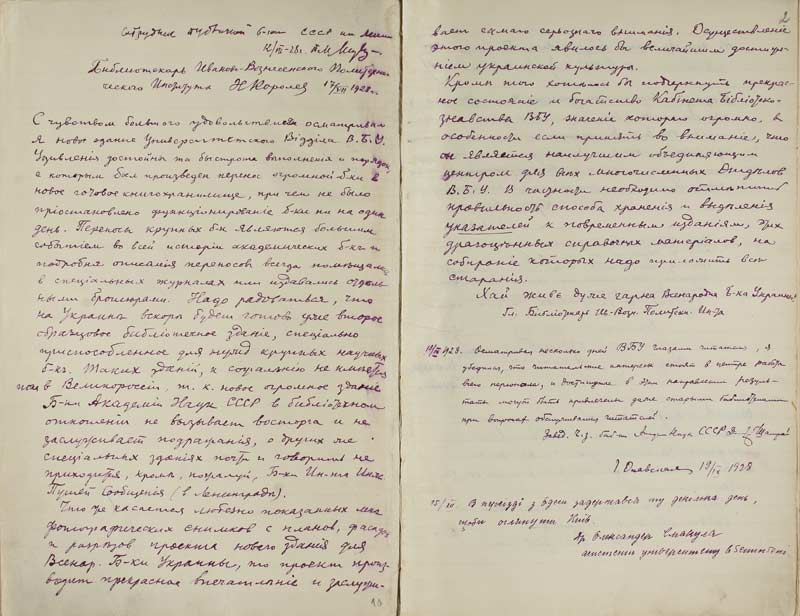 Сотрудник Публичной б-ки СССР им Ленина
12/VII-28 г.
Библиотекарь Иваново-Вознесенского Политехни-
ческого Института Н Королев 17/VII 1928 г.
С чувством большого удовольствия осматривал
я новое здание Университетского Відділа В.Б.У.
Удивления достойны та быстрота выполнения и порядок,
с которым был произведен перенос огромной б-ки в
новое готовое книгохранилище, при чем не было
приостановлено функционирование б-ки ни на один
день. Переносы крупных б-к являются большим
событием во всей истории академических б-к и
подробные описания переносов всегда помещались
в специальных журналах или издавались отдель-
ными брошюрами. Надо радоваться, что
на Украине вскоре будет готово уже второе
образцовое библиотечное здание, специально
приспособленное для нужд крупных научных
б-к. Таких зданий, к сожалению не имеется
в Великороссии, т. к. новое огромное здание
Б-ки Академии Наук СССР в библиотечном
отношении не вызывает восторга и не
заслуживает подражания, о других же
специальных зданиях почти и говорить не
приходится, кроме, пожалуй, Б-ки Ин-та Инж.
Путей Сообщения (в Ленинграде).
Что же касается любезно показанных мне
фотографических снимков с планов, фасадов
и разрезов проекта нового здания для
Всенар. Б-ки Украины, то проект произ-
водит прекрасное впечатление и заслужи-
10
2
вает самого серьезного внимания. Осуществление
этого проекта явилось бы величайшим достиже-
нием украинской культуры.
Кроме того хотелось бы подчеркнуть прекрас-
ное состояние и богатство Кабінета Бібліотеко-
знавства ВБУ, значение которого огромно, в
особенности если принять во внимание, что
он является наилучшим объединяющим
центром для всех многочисленных Відділов
В.Б.У. В частности необходимо отметить
правильность способа хранения и выделения
указателей к повременным изданиям, этих
драгоценных справочных материалов, на
собирание которых надо приложить все
старания.
Хай живе дуже гарна Всенародня Б-ка України!
Гл. Библиотекарь Ив-Возн. Политехн. Ин-та
19/IX 1928. Осматривая несколько дней ВБУ глазами читателя, я
убедился, что читательские интересы стоят в центре работы
всего персонала, и достигнутые в этом направлении резуль-
таты могут быть примером даже старым библиотекам
при вопросах обслуживания читателей.
Завед. Ч.З. Библ-ки Академии Наук СССР
19/IX 1928
25/IX В приїзді з Одеси задержався ту декілька день,
щоби оглянути Київ.
Др. Олександер
асистент університету в